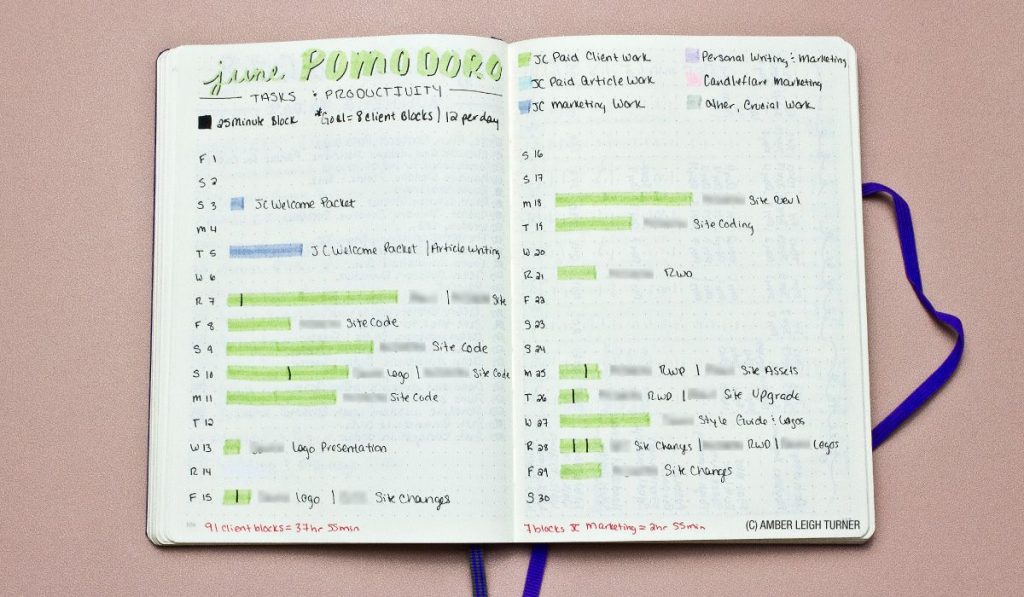 june POMODORO
TASKS & PRODUCTIVITY
25 minute Block *Goal = 8 client Blocks | 12 per day
F 1
S 2
S 3 JC Welcome Packet
M 4
T 5 JC Welcome Packet | Article Writing
W 6
R 7 | Site
F 8 Site Code
S 9 Site Code
S 10 Logo | Site Code
M 11 Site Code
T 12
W 13 Logo Presentation
R 14
F 15 Logo | Site Changes
91 client blocks = 37hr 55min
JC Paid Client Work
JC Paid Article Work
JC Marketing Work
Personal Writing & Marketing
Candleflare Marketing
Other, Crucial Work
S 16
S 17
M 18 Site Rev 1
T 19 Site Coding
W 20
R 21 RWD
F 22
S 23
S 24
M 25 RWD | Site Assets
T 26 RWD | Site Upgrade
W 27 Style Guide & Logos
R 28 Site Changes | RWD | Logos
F 29 Site Changes
S 30
7 blocks JC Marketing = 2hr 55min
(C) AMBER LEIGH TURNER